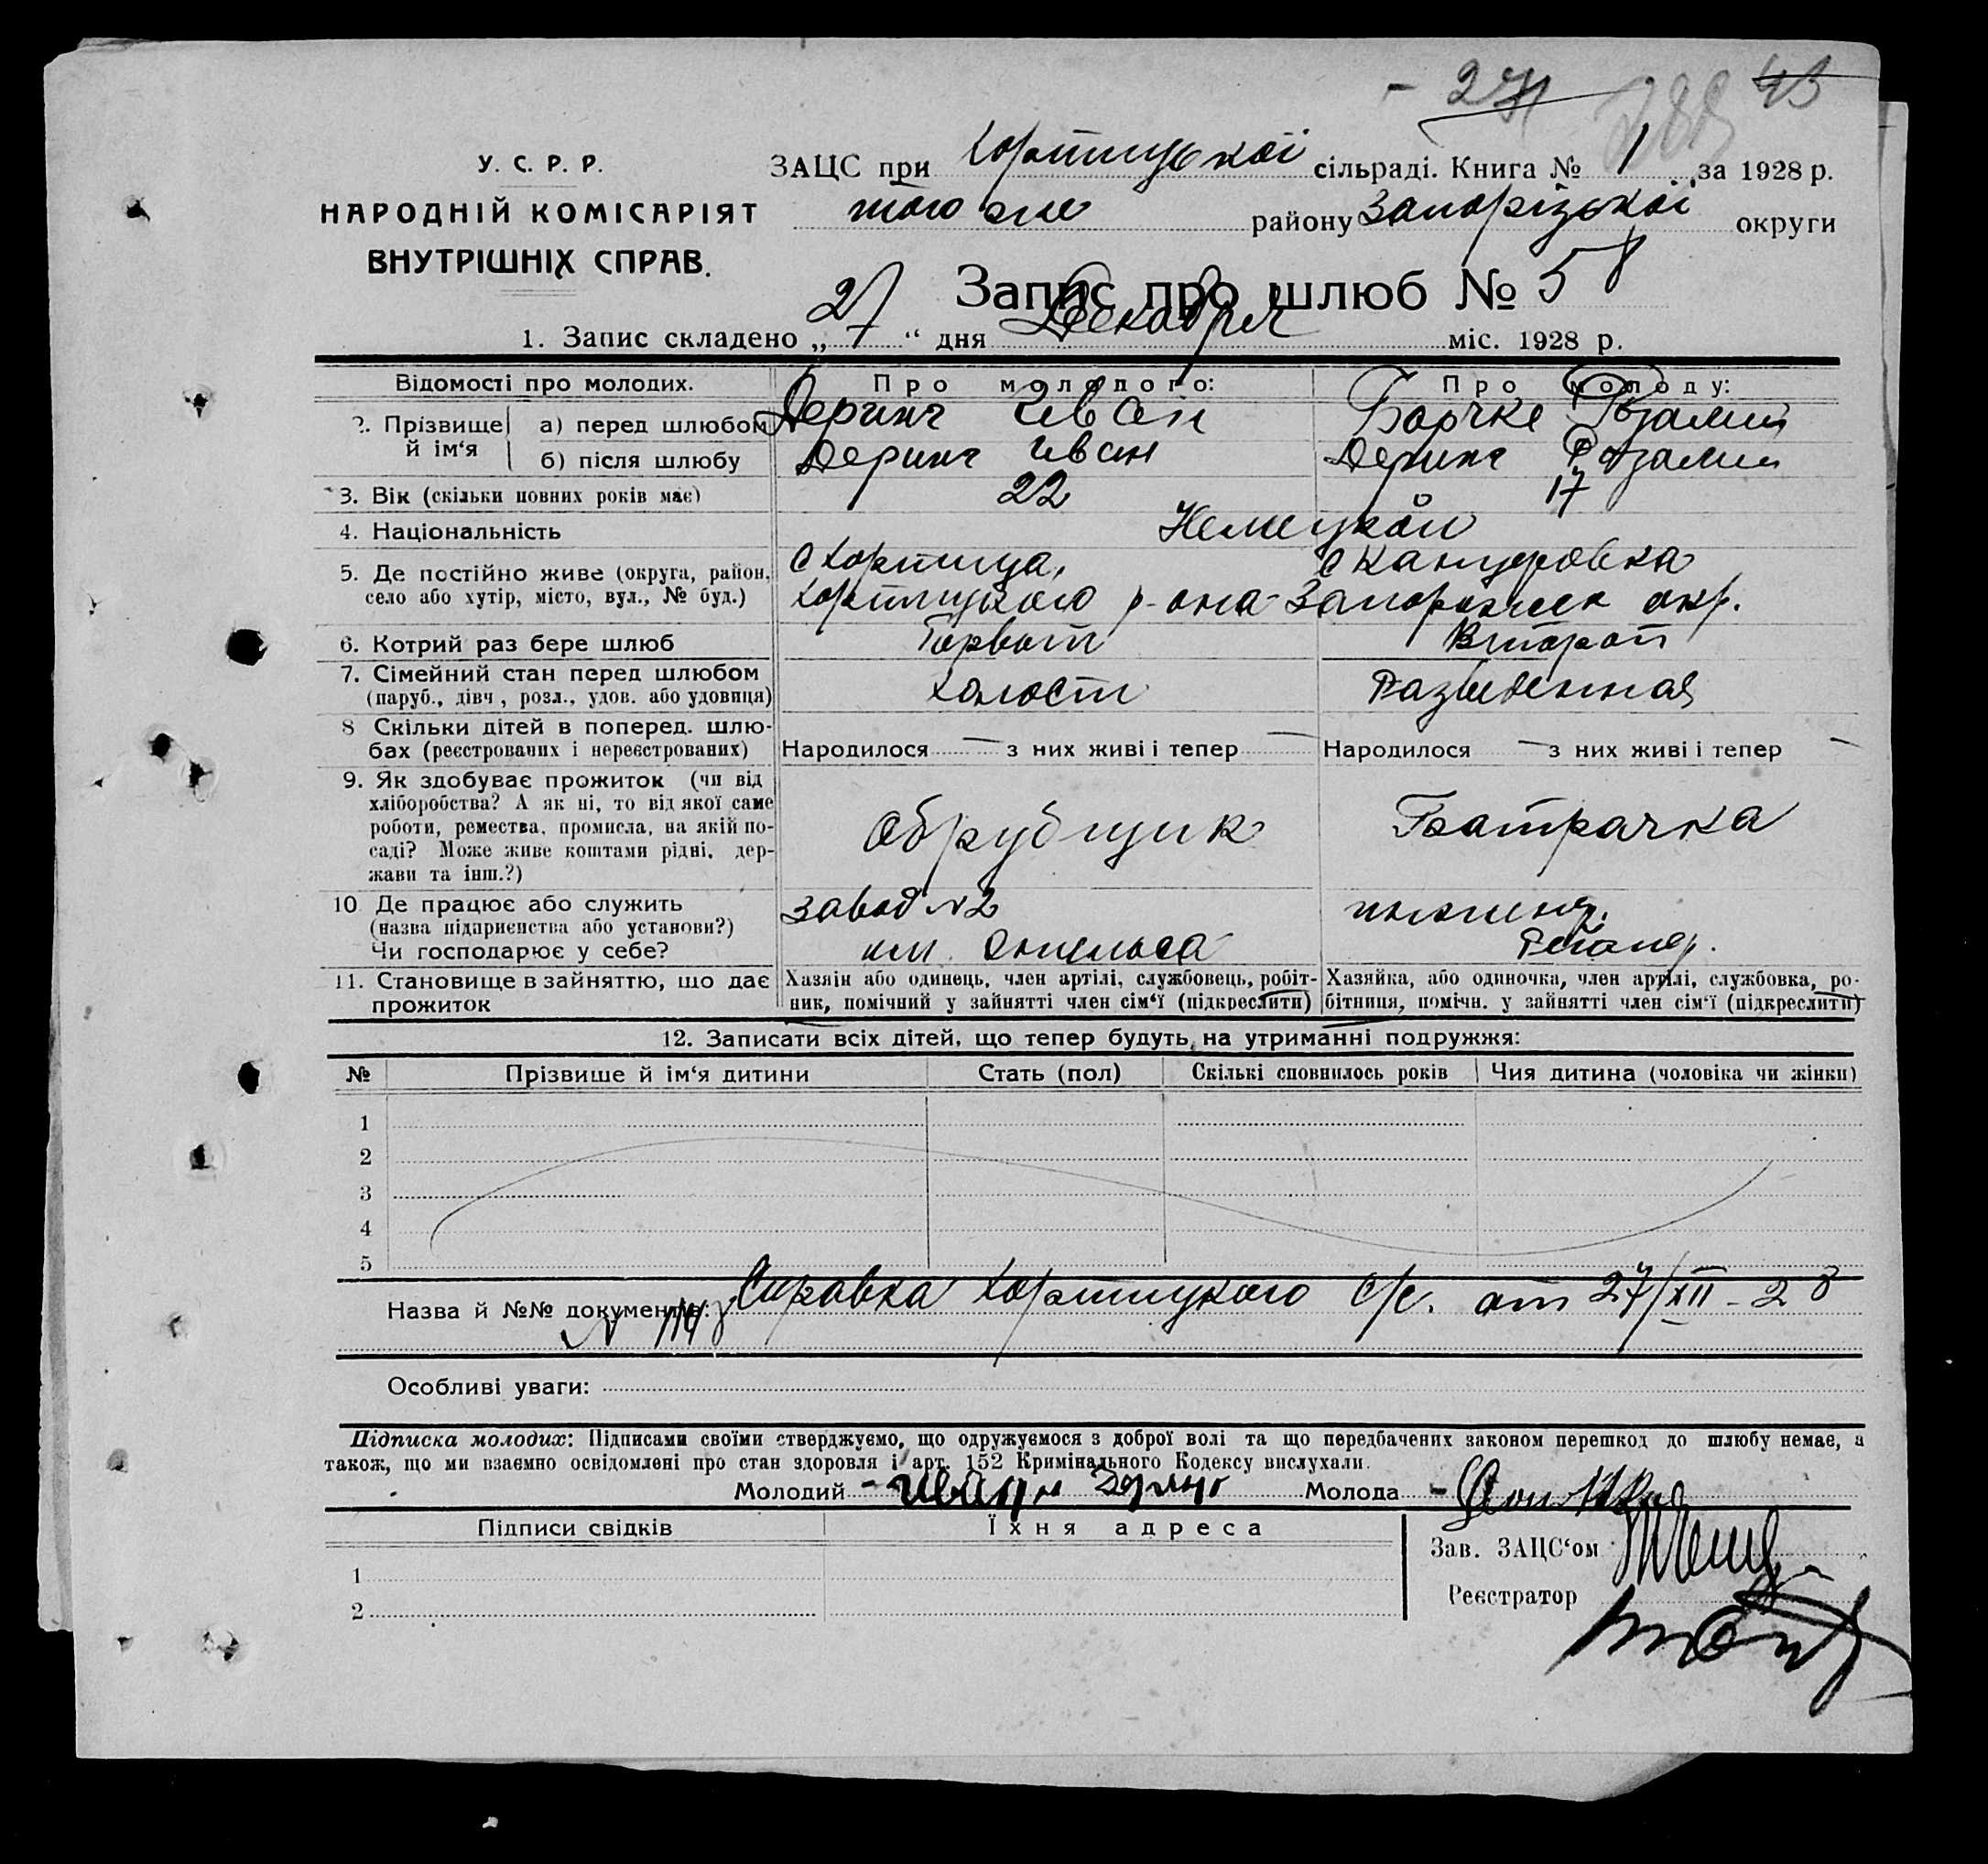 У. С. Р. Р.
НАРОДНІЙ КОМІСАРІЯТ
ВНУТРІШНІХ СПРАВ.
ЗАЦС при Хортицької сільраді. Книга № 1 за 1928 р.
того же району Запорізької округи
Запис про шлюб № 58
1. Запис складено „27“ дня Декабря міс. 1928 р.
Відомості про молодих. Про молодого: Про молоду:
2. Прізвище й ім‘я а) перед шлюбом Деринг Иван Розалия
б) після шлюбу Деринг Иван Деринг Розалия
3. Вік (скільки повних років має) 22 17
4. Національність Немецкой
5. Де постійно живе (округа, район, с Хортица, с Канцеровка
село або хутір, місто, вул., № буд.) Хортицкого р-она Запорожск окр.
6. Котрий раз бере шлюб Первой Второй
7. Сімейний стан перед шлюбом
(паруб., дівч, розл., удов. або удовиця) Холост Разведенная
8 Скільки дітей в поперед. шлю-
бах (реєстрованих і нереєстрованих) Народилося — з них живі і тепер — Народилося — з них живі і тепер —
9. Як здобуває прожиток (чи від
хліборобства? А як ні, то від якої саме
роботи, ремества, промисла, на якій по- Обрубщик Батрачка
саді? Може живе коштами рідні, дер-
жави та інш.?)
10 Де працює або служить завод №2
(назва підприєнства або установи?)
Чи господарює у себе? им. Энгельса
11. Становище в зайняттю, що дає Хазяін або одинець, член артілі, службовець, робіт- Хазяйка, або одиночка, член артілі, службовка, ро-
прожиток ник, помічний у зайнятті член сім‘ї (підкреслити) бітниця, помічн. у зайнятті член сім‘ї (підкреслити)
12. Записати всіх дітей, що тепер будуть на утриманні подружжя:
№ Прізвише й ім‘я дитини Стать (пол) Скількі сповнилось років Чия дитина (чоловіка чи жінки)
1
2
3
4
5
Назва й №№ документів: Справка Хортицкого с/с. от 27/XII-28
№
Особливі уваги:
Підписка молодих: Підписами своїми стверджуємо, що одружуємося з доброї волі та що передбачених законом перешкод до шлюбу немає, а
також, що ми взаємно освідомлені про стан здоровля і арт. 152 Кримінального Кодексу вислухали.
Молодий - Иван Молода -
Підписи свідків Їхня адреса
Зав. ЗАЦС‘ом
1
Реєстратор
2